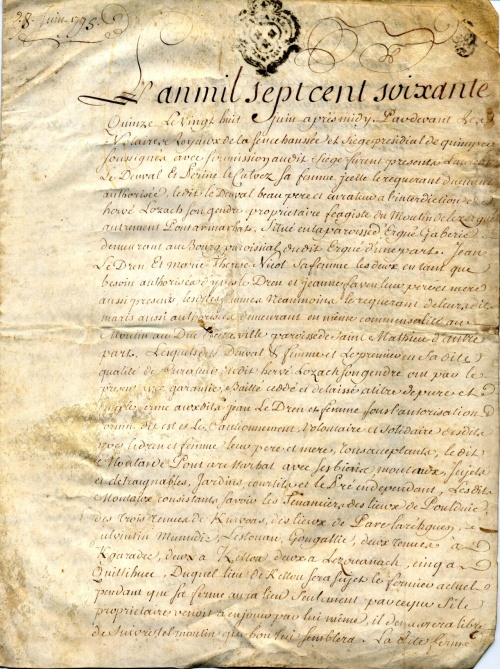 28 Juin 1775
L'an mil sept cent soixante
Quinze Le vingt huit Juin apres midy Pardevant Les
Notaires Royaux de la senechaussée et siege presidial de quimper
soussignes avec soumission audit siege furent presents Laurent
Le Denval et Perine Le Calvez sa femme icelle le requerant dument
authorisée, ledit le Denval beau pere et curateur a l'interdiction de
hervé Lozach son gendre, proprietaire foggiste du Moulin de
autrement Pontarmarhat, Situé en la paroisse d'Ergué Gaberic
demeurant au Bourg paroissial dudit Ergué d'une part. Jean
Le Dren Et marie Therese Nicot sa femme les deux en tant que
besoin authorisés d'yves Le Dren et jeanne leur pere et mere
aussi presents les dites femmes Neanmoins le requerant de leurs dits
maris aussi authorisées demeurant en même communauté au
Moulin au Duc ville paroisse de Saint Mathieu d'autre
part. Lesquels dits Denval & femme et Le premier en sa dite
qualité de Curateur dudit hervé Lozach son gendre ont par le
present avec garantie, baillé cedé et delaissé a titre de pure et
simple ferme auxdits jean Le Dren et femme sous l'autorisation
comme dit est et Le Cautionnement, Volontaire et solidaire desdits
yves ledren et femme leur pere et mere, tous acceptants, ledit
Moulin de Pont ar Marhat avec ses biens mouteaux, sujets
et detraignables, Jardins, courtils et le Pré independant, Lesdits
Moutaux consistants savoir les Tenanciers des lieux de Poulduic
des trois tenues de des lieux de Parc
Quillihuec, Duquel lieu de Kellou sera sujet le fermier actuel
pendant que sa ferme aura lieu Seulement parceque si le
proprietaire venoit a en jouir par lui même, il demeurera libre
de suivre tel moulin que bon lui semblera. La dite ferme